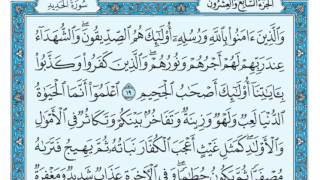 سُورَةُ الحَدِيدِ
الجُزْءُ السَّابِعُ وَالعِشْرُونَ
وَالَّذِينَ ءَامَنُوا۟ بِاللَّهِ وَرُسُلِهِۦٓ أُو۟لَٰٓئِكَ هُمُ الصِّدِّيقُونَ ۖ وَالشُّهَدَآءُ
عِندَ رَبِّهِمْ لَهُمْ أَجْرُهُمْ وَنُورُهُمْ ۖ وَالَّذِينَ كَفَرُوا۟ وَكَذَّبُوا۟
بِـَٔايَٰتِنَآ أُو۟لَٰٓئِكَ أَصْحَٰبُ الْجَحِيمِ ١٩ اعْلَمُوٓا۟ أَنَّمَا الْحَيَوٰةُ
الدُّنْيَا لَعِبٌ وَلَهْوٌ وَزِينَةٌ وَتَفَاخُرٌۢ بَيْنَكُمْ وَتَكَاثُرٌ فِى الْأَمْوَٰلِ
وَالْأَوْلَٰدِ ۖ كَمَثَلِ غَيْثٍ أَعْجَبَ الْكُفَّارَ نَبَاتُهُۥ ثُمَّ يَهِيجُ فَتَرَىٰهُ
مُصْفَرًّا ثُمَّ يَكُونُ حُطَٰمًا ۖ وَفِى الْـَٔاخِرَةِ عَذَابٌ شَدِيدٌ وَمَغْفِرَةٌ